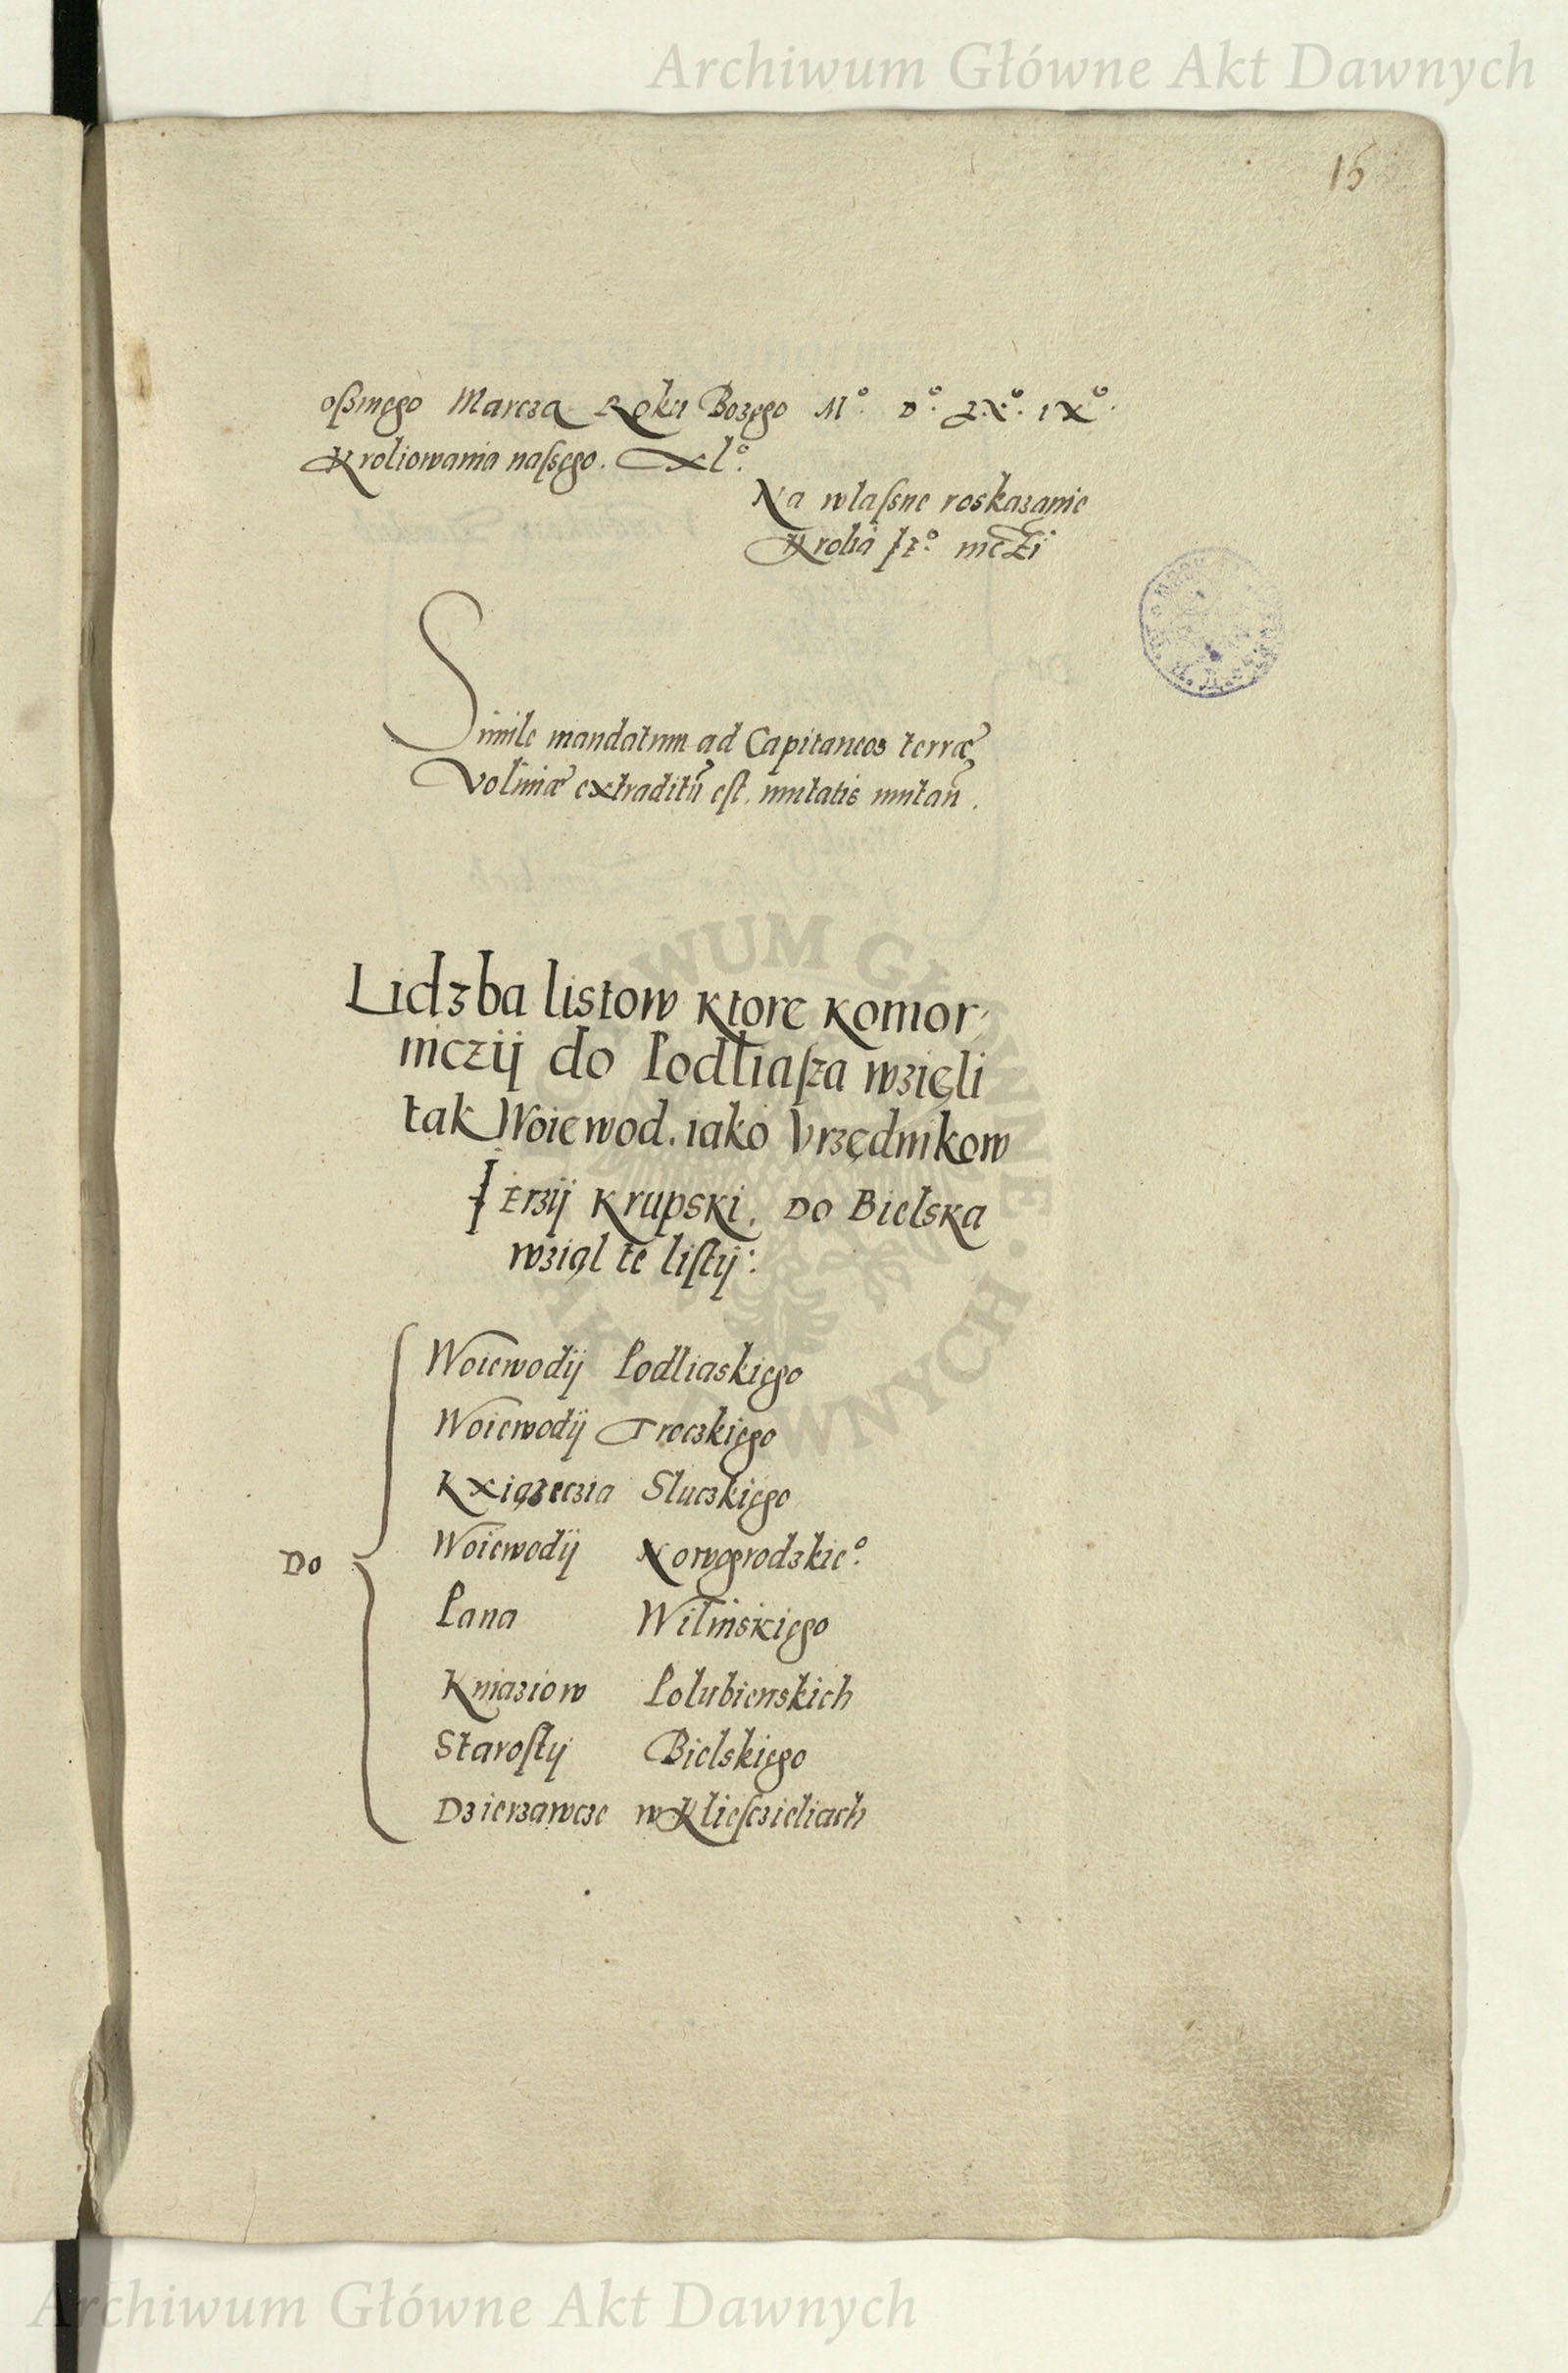 Archiwum Główne Akt Dawnych
15
oßmego Marcza Roku Bozego Mº. Dº. LXº. IXº.
Kroliowania naſsego. Xlº.
Na wlaſsne roskazanie
Krolia Jeº. mczi
Simile mandatum ad Capitaneos terræ
Voliniæ extraditū eſt. mutatis mutan̄.
Lidzba listow ktore komor
niczij do Podliaſza wzięli
tak Woiewod. iako Vrzędnikow
Jerzij Krupski. Do Bielska
wziął te liſtij:
Woiewodij Podliaskiego
Woiewodij Troczkiego
Kxiążeczia Sluczkiego
Do
Woiewodij Nowogrodzkieº.
Pana Wilinskiego
Kniaziow Polubienskich
Staroſtij Bielskiego
Dzierzawcze w Klieſczieliach
Archiwum Główne Akt Dawnych